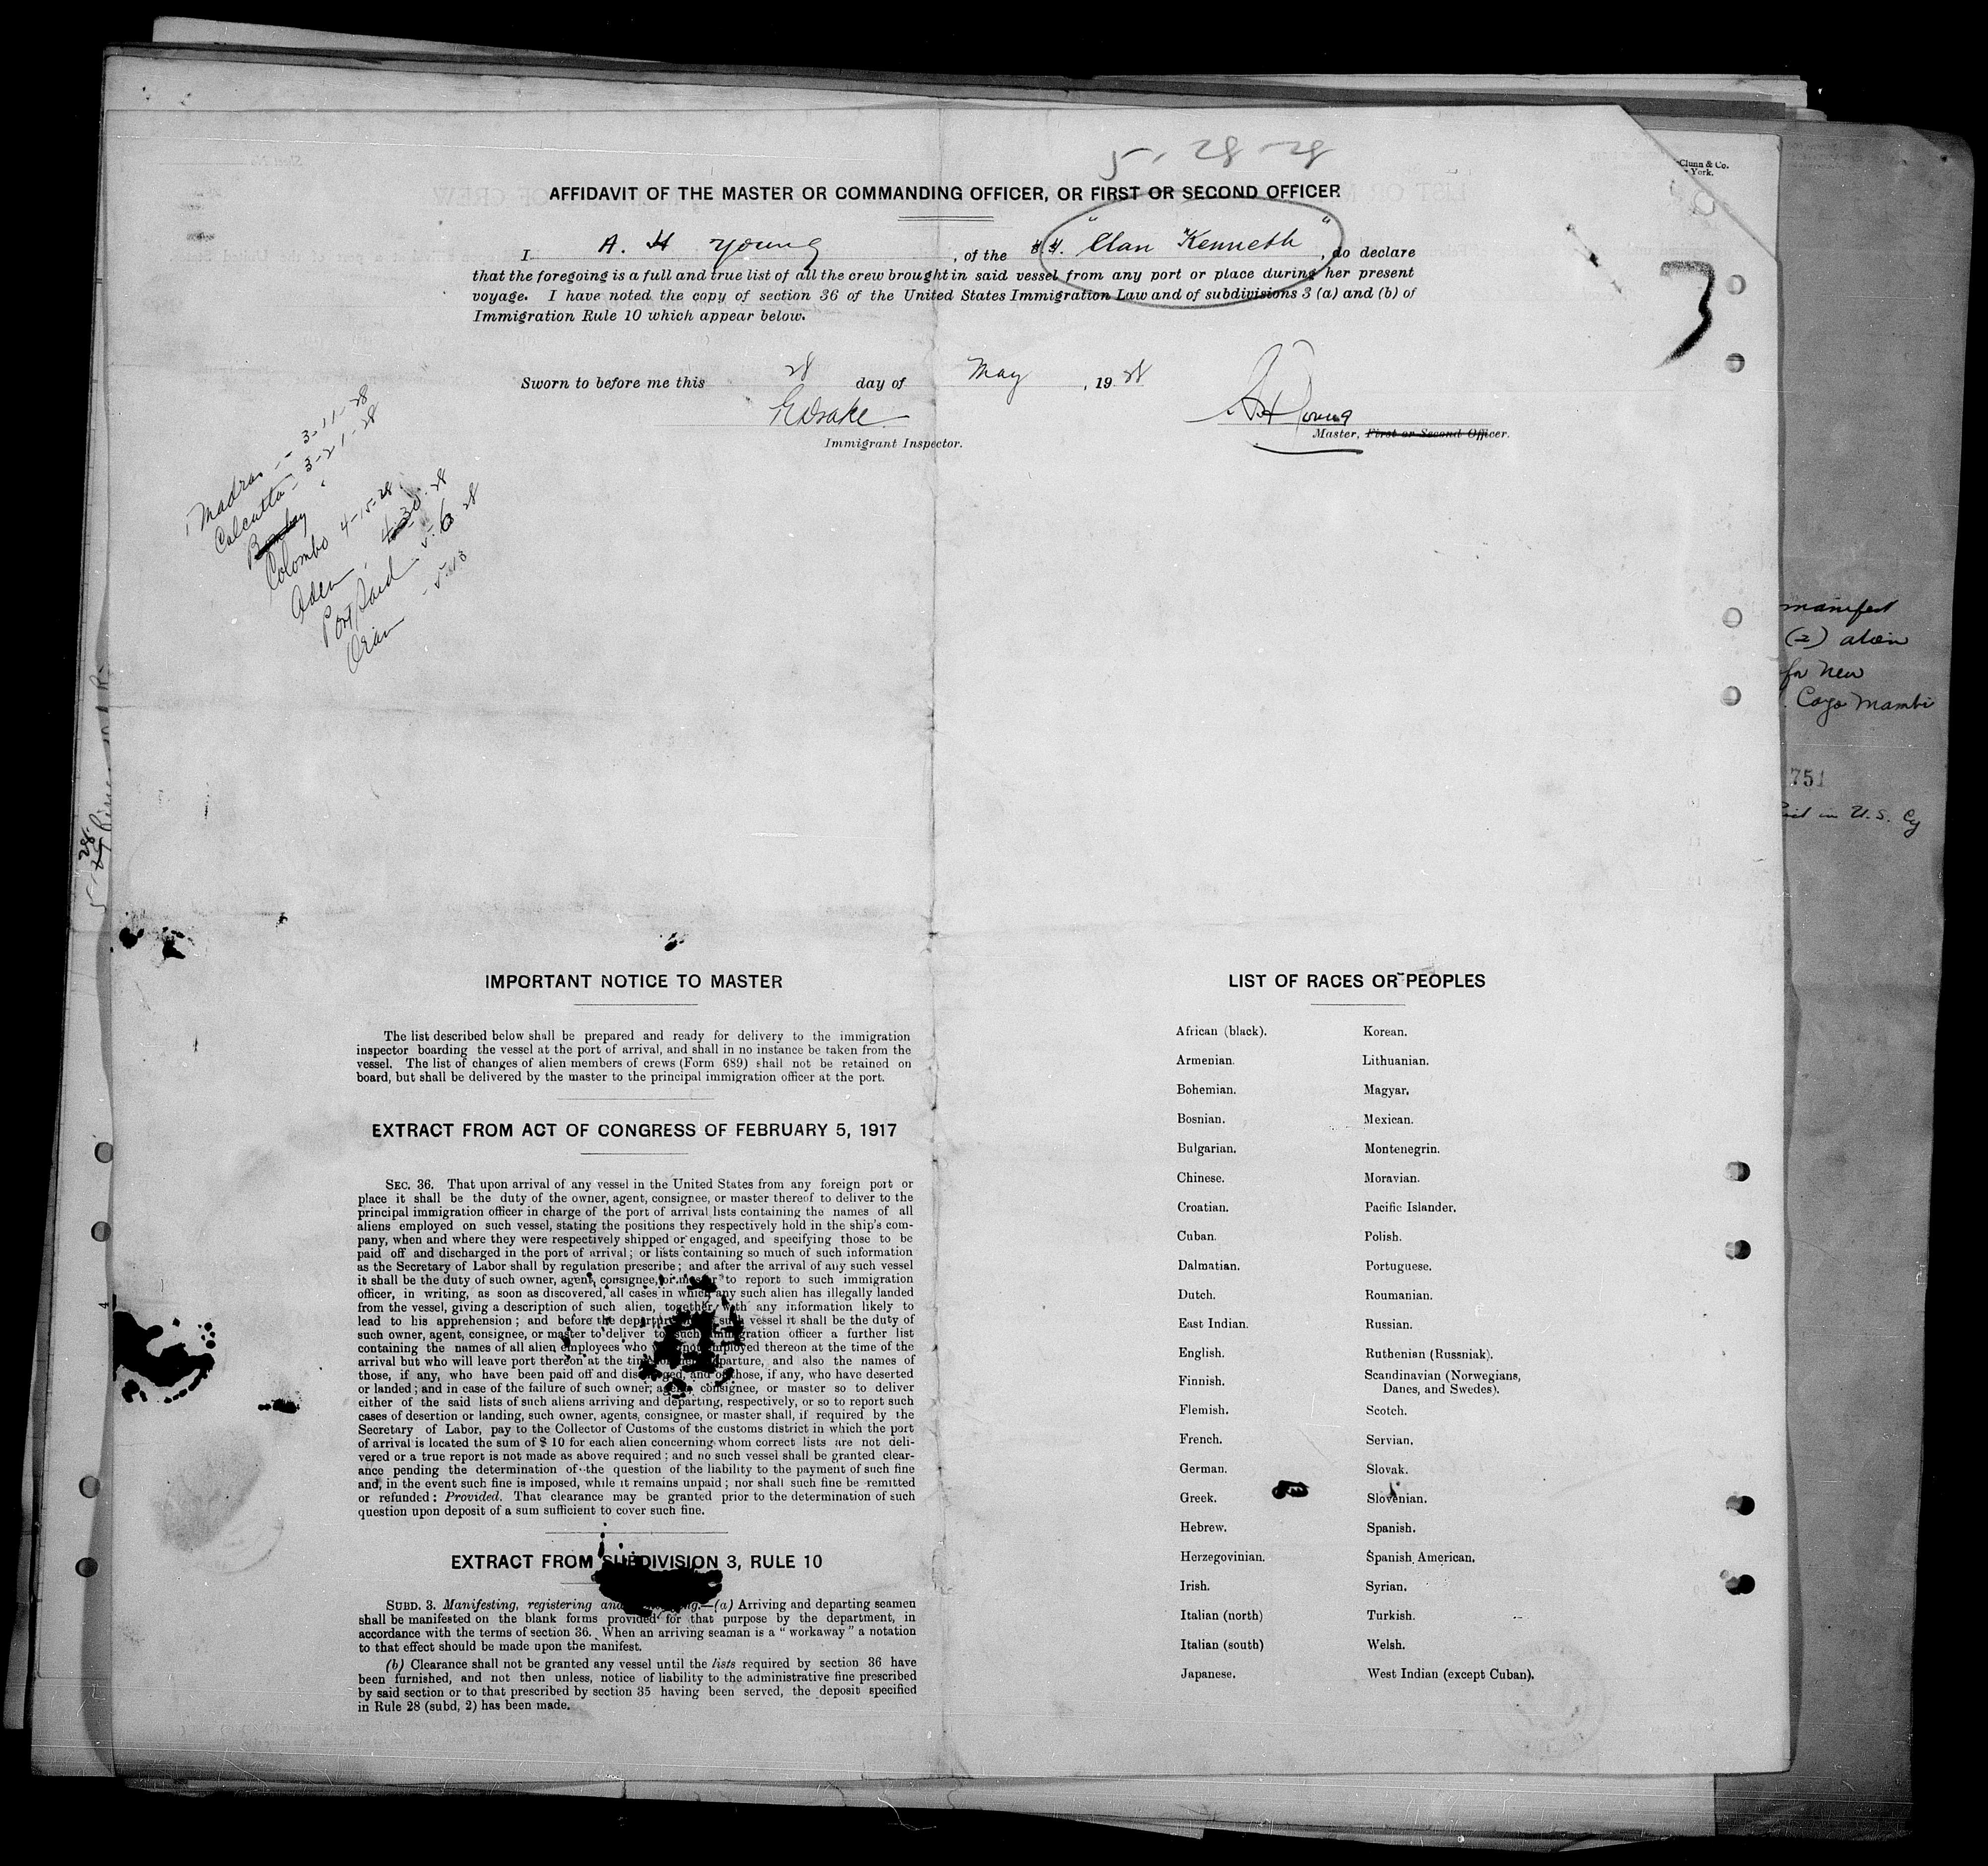 5-28-28
Clunn & Co.
York.
AFFIDAVIT OF THE MASTER OR COMMANDING OFFICER, OR FIRST OR SECOND OFFICER
I A. H Young, of the S.S. "Clan Kenneth", do declare
that the foregoing is a full and true list of all the crew brought in said vessel from any port or place during her present
voyage. I have noted the copy of section 36 of the United States Immigration Law and of subdivisions 3 (a) and (b) of
Immigration Rule 10 which appear below.
3
Sworn to before me this 28 day of May, 1928
Drake
Immigrant Inspector.
A H Young
Master, First or Second Officer.
Madras -- 3-11-28
Calcutta - 3-21-28
Bombay
Colombo 4-15-28
Aden 4-30-28
Port Said 5-6-28
Oran - 5-13
manifest
(2) alien
for New
Cayo Mambi
751
in U.S. Cy
IMPORTANT NOTICE TO MASTER
The list described below shall be prepared and ready for delivery to the immigration
inspector boarding the vessel at the port of arrival, and shall in no instance be taken from the
vessel. The list of changes of alien members of crews (Form 689) shall not be retained on
board, but shall be delivered by the master to the principal immigration officer at the port.
EXTRACT FROM ACT OF CONGRESS OF FEBRUARY 5, 1917
SEC. 36. That upon arrival of any vessel in the United States from any foreign port or
place it shall be the duty of the owner, agent, consignee, or master thereof to deliver to the
principal immigration officer in charge of the port of arrival lists containing the names of all
aliens employed on such vessel, stating the positions they respectively hold in the ship's com-
pany, when and where they were respectively shipped or engaged, and specifying those to be
paid off and discharged in the port of arrival; or lists containing so much of such information
as the Secretary of Labor shall by regulation prescribe; and after the arrival of any such vessel
it shall be the duty of such owner, agent, consignee, or master to report to such immigration
officer, in writing, as soon as discovered, all cases in which any such alien has illegally landed
from the vessel, giving a description of such alien, together with any information likely to
lead to his apprehension; and before the departure such vessel it shall be the duty of
such owner, agent, consignee, or master to deliver to such immigration officer a further list
containing the names of all alien employees who not employed thereon at the time of the
arrival but who will leave port thereon at the time departure, and also the names of
those, if any, who have been paid off and discharged, and of those, if any, who have deserted
or landed; and in case of the failure of such owner, agent, consignee, or master so to deliver
either of the said lists of such aliens arriving and departing, respectively, or so to report such
cases of desertion or landing, such owner, agents, consignee, or master shall, if required by the
Secretary of Labor, pay to the Collector of Customs of the customs district in which the port
of arrival is located the sum of $ 10 for each alien concerning whom correct lists are not deli-
vered or a true report is not made as above required; and no such vessel shall be granted clear-
ance pending the determination of the question of the liability to the payment of such fine
and, in the event such fine is imposed, while it remains unpaid; nor shall such fine be remitted
or refunded: Provided. That clearance may be granted prior to the determination of such
question upon deposit of a sum sufficient to cover such fine.
EXTRACT FROM SUBDIVISION 3, RULE 10
SUBD. 3. Manifesting, registering and —(a) Arriving and departing seamen
shall be manifested on the blank forms provided for that purpose by the department, in
accordance with the terms of section 36. When an arriving seaman is a "workaway" a notation
to that effect should be made upon the manifest.
(b) Clearance shall not be granted any vessel until the lists required by section 36 have
been furnished, and not then unless, notice of liability to the administrative fine prescribed
by said section or to that prescribed by section 35 having been served, the deposit specified
in Rule 28 (subd, 2) has been made.
LIST OF RACES OR PEOPLES
African (black). Korean.
Armenian. Lithuanian.
Bohemian. Magyar.
Bosnian. Mexican.
Bulgarian. Montenegrin.
Chinese. Moravian.
Croatian. Pacific Islander.
Cuban. Polish.
Dalmatian. Portuguese.
Dutch. Roumanian.
East Indian. Russian.
English. Ruthenian (Russniak).
Finnish. Scandinavian (Norwegians,
Danes, and Swedes).
Flemish. Scotch.
French. Servian.
German. Slovak.
Greek. Slovenian.
Hebrew. Spanish.
Herzegovinian. Spanish American.
Irish. Syrian.
Italian (north) Turkish.
Italian (south) Welsh.
Japanese. West Indian (except Cuban).